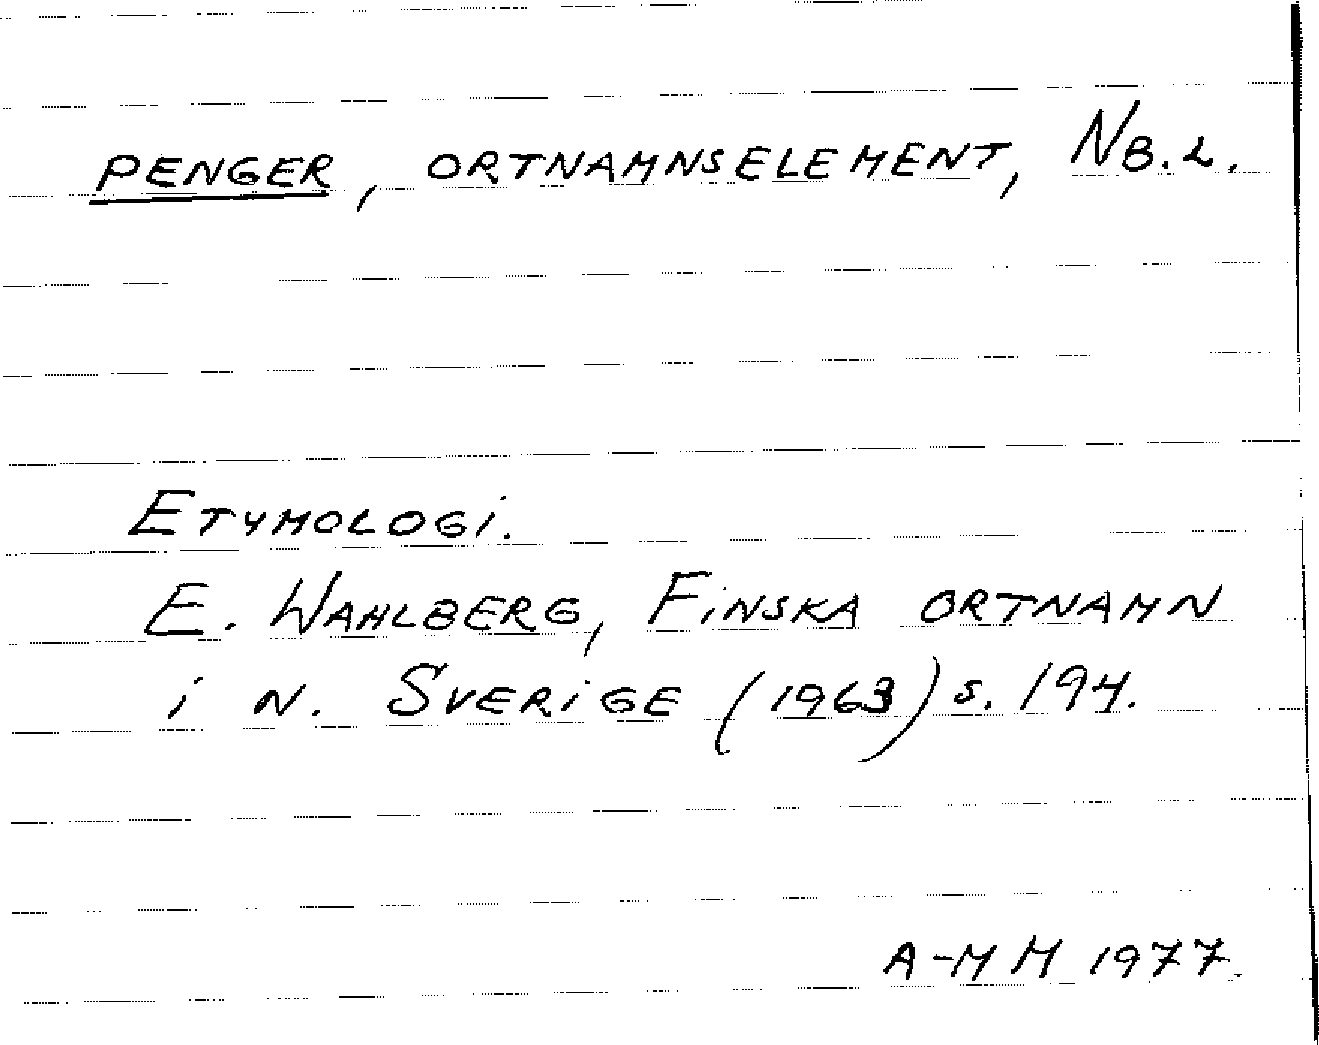 PENGER, ORTNAMNSELEMENT, NB.L.
ETYMOLOGI.
E. WAHLBERG, FINSKA ORTNAMN
i N. SVERIGE (1963) s. 194.
A-MM 1977